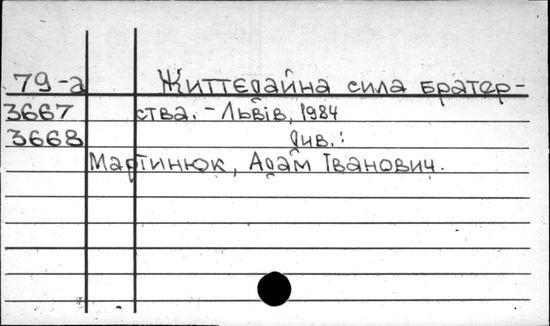 79-а Життєдайна сила братер-
3667 ства. - Львів, 1984
3668 Див.:
Мартинюк, Адам Іванович.